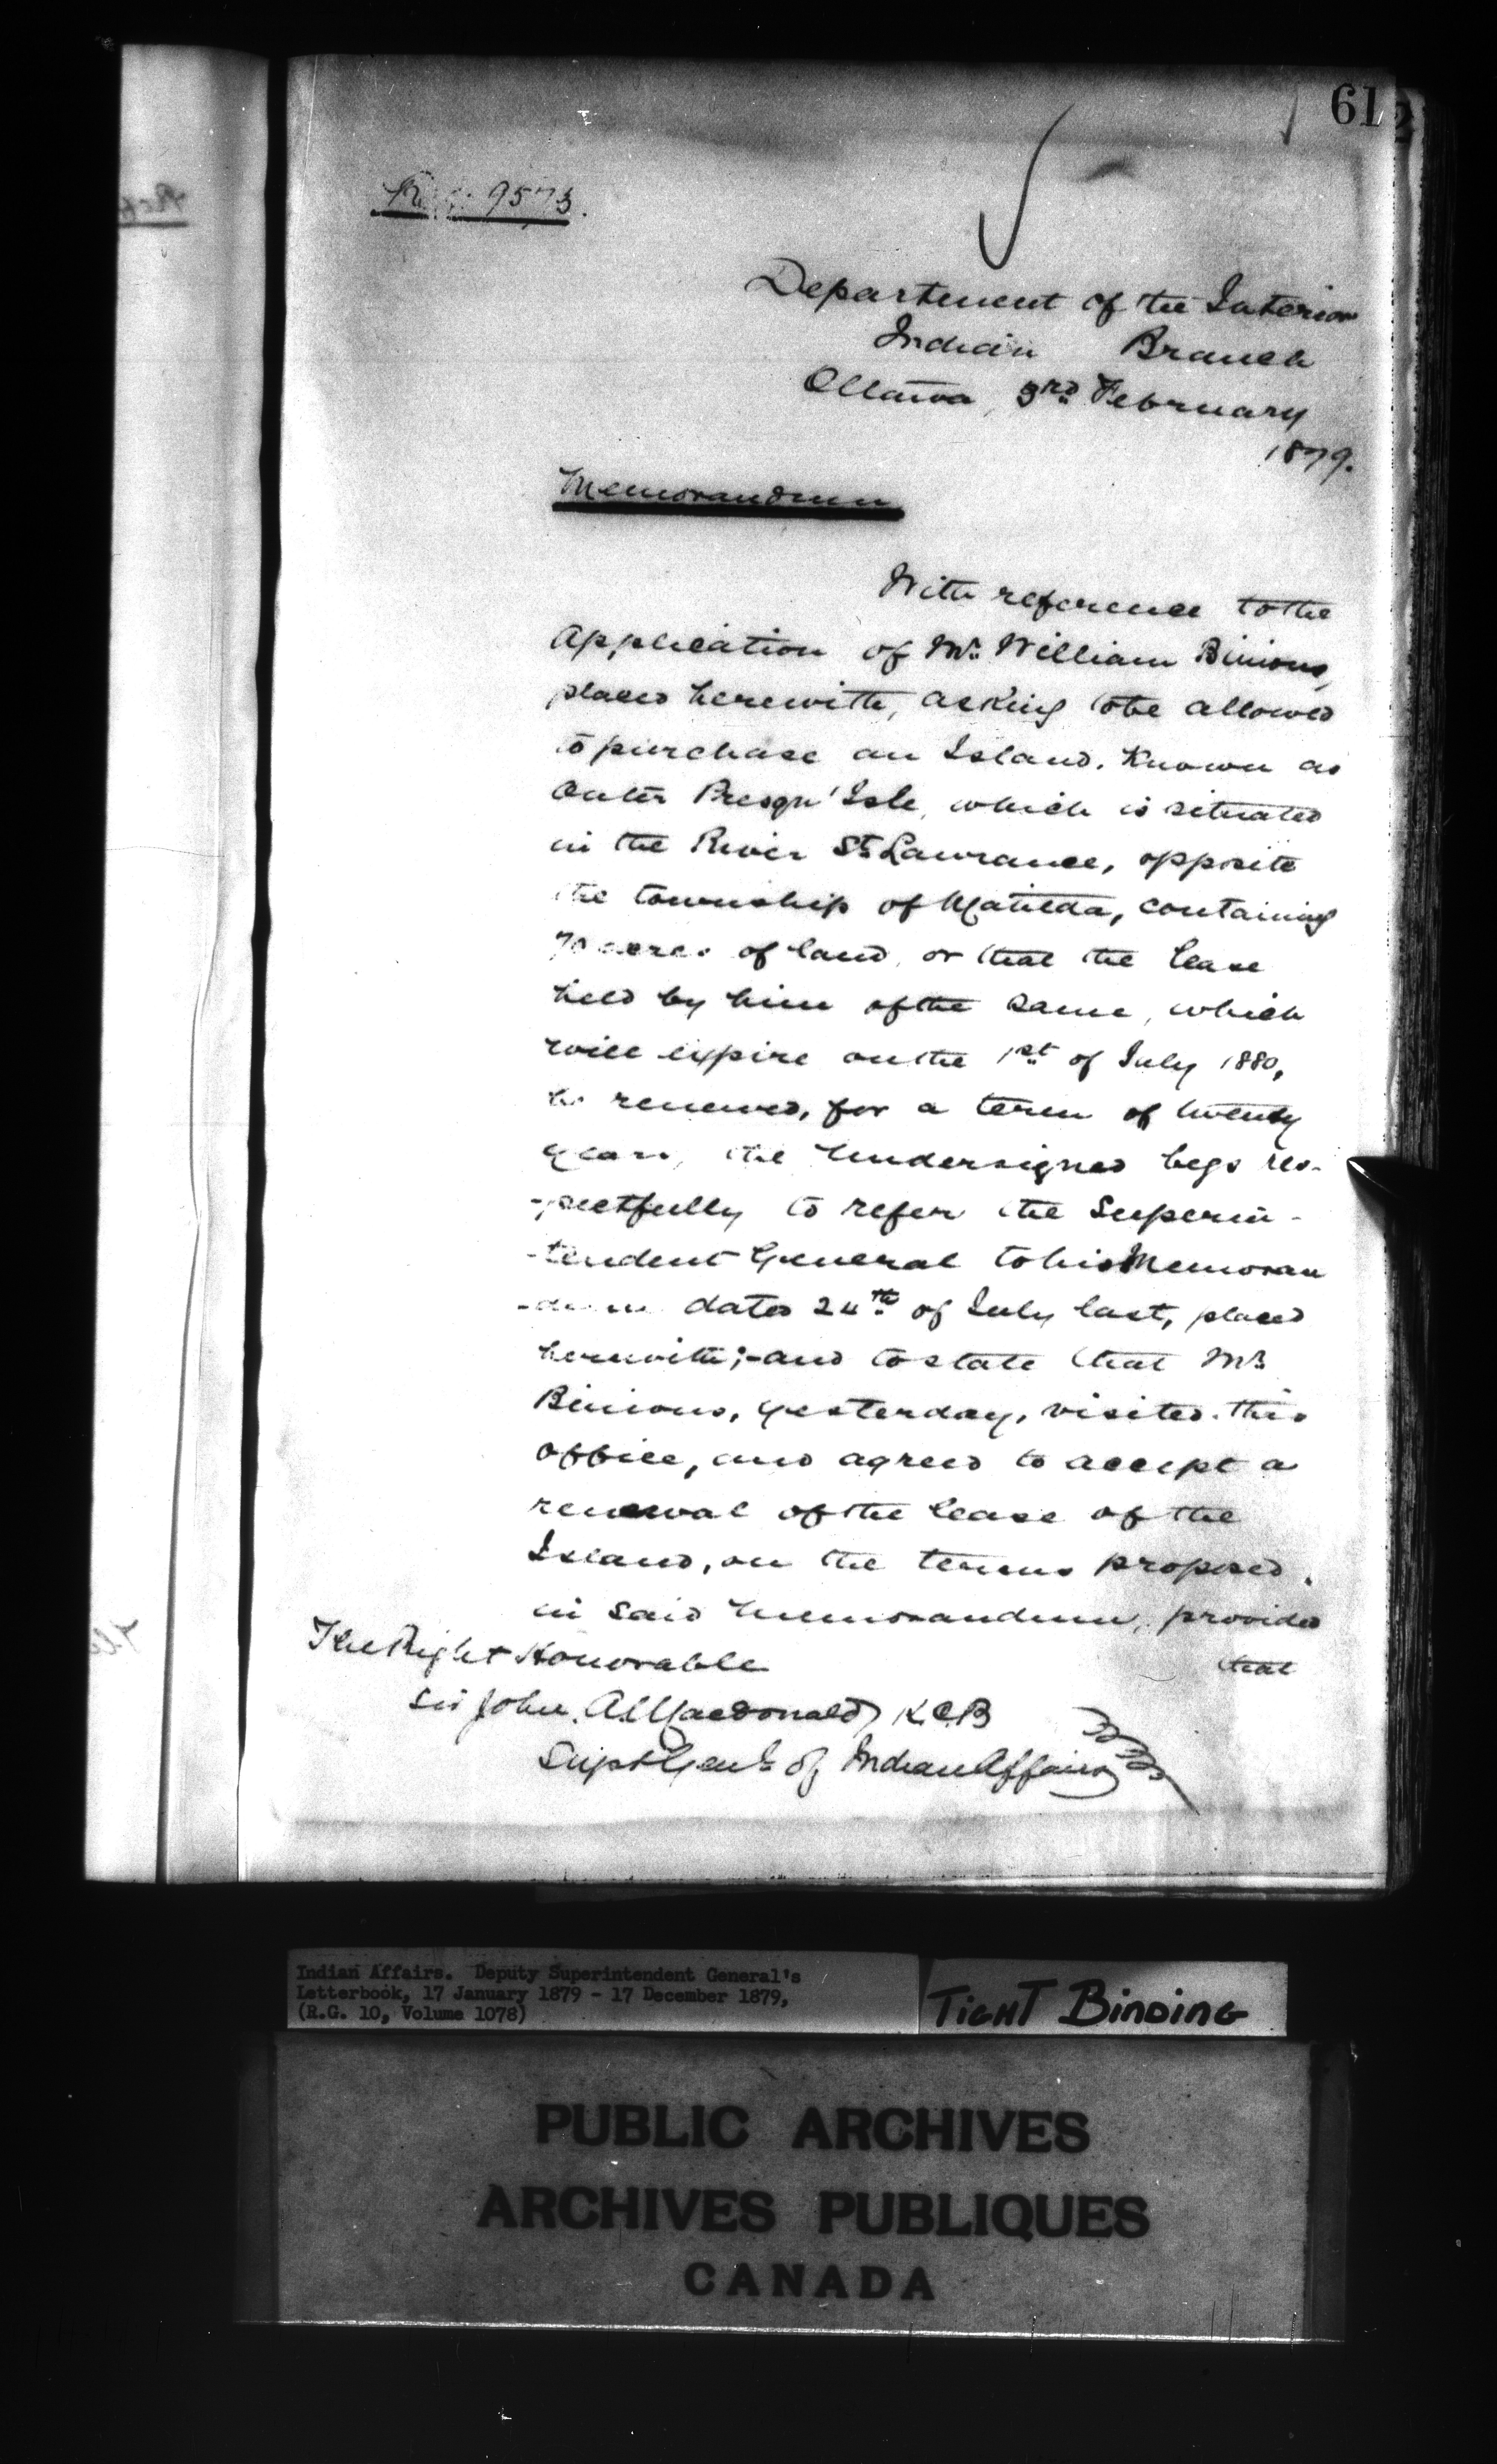 61
Ref: 9573.
Department of the Interior
Indian Branch
Ottawa, 3rd February
1879.
Memorandum
With reference to the
application of Mr. William Binions,
placed herewith, asking to be allowed
to purchase an Island, Known as
Outer Presqu' Isle, which is situated
in the River St. Lawrance, opposite
the township of Matilda, containing
70 acres of land, or that the lease
held by him of the same, which
will expire on the 1st of July 1880,
be renewed, for a term of twenty
years, the Undersigned begs res-
-pectfully to refer the Superin-
-tendent General to his Memoran
-dum dated 24th of July last, placed
herewith;- and to state that Mr.
Binions, yesterday, visited this
office, and agreed to accept a
renewal of the lease of the
Island, on the terms proposed
in said Memorandum, provided
that
The Right Honorable
Sir John. A. Macdonald, K.C.B
Supt Genl. of Indian Affairs
Indian Affairs. Deputy Superintendent General's
Letterbook, 17 January 1879 - 17 December 1879,
(R.G. 10, Volume 1078)
TIGHT BINDING
PUBLIC ARCHIVES
ARCHIVES PUBLIQUES
CANADA